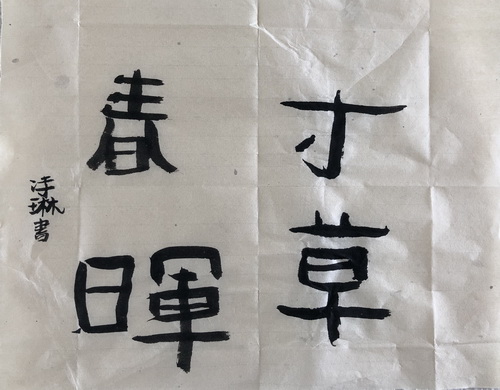 寸草
春暉
琳書